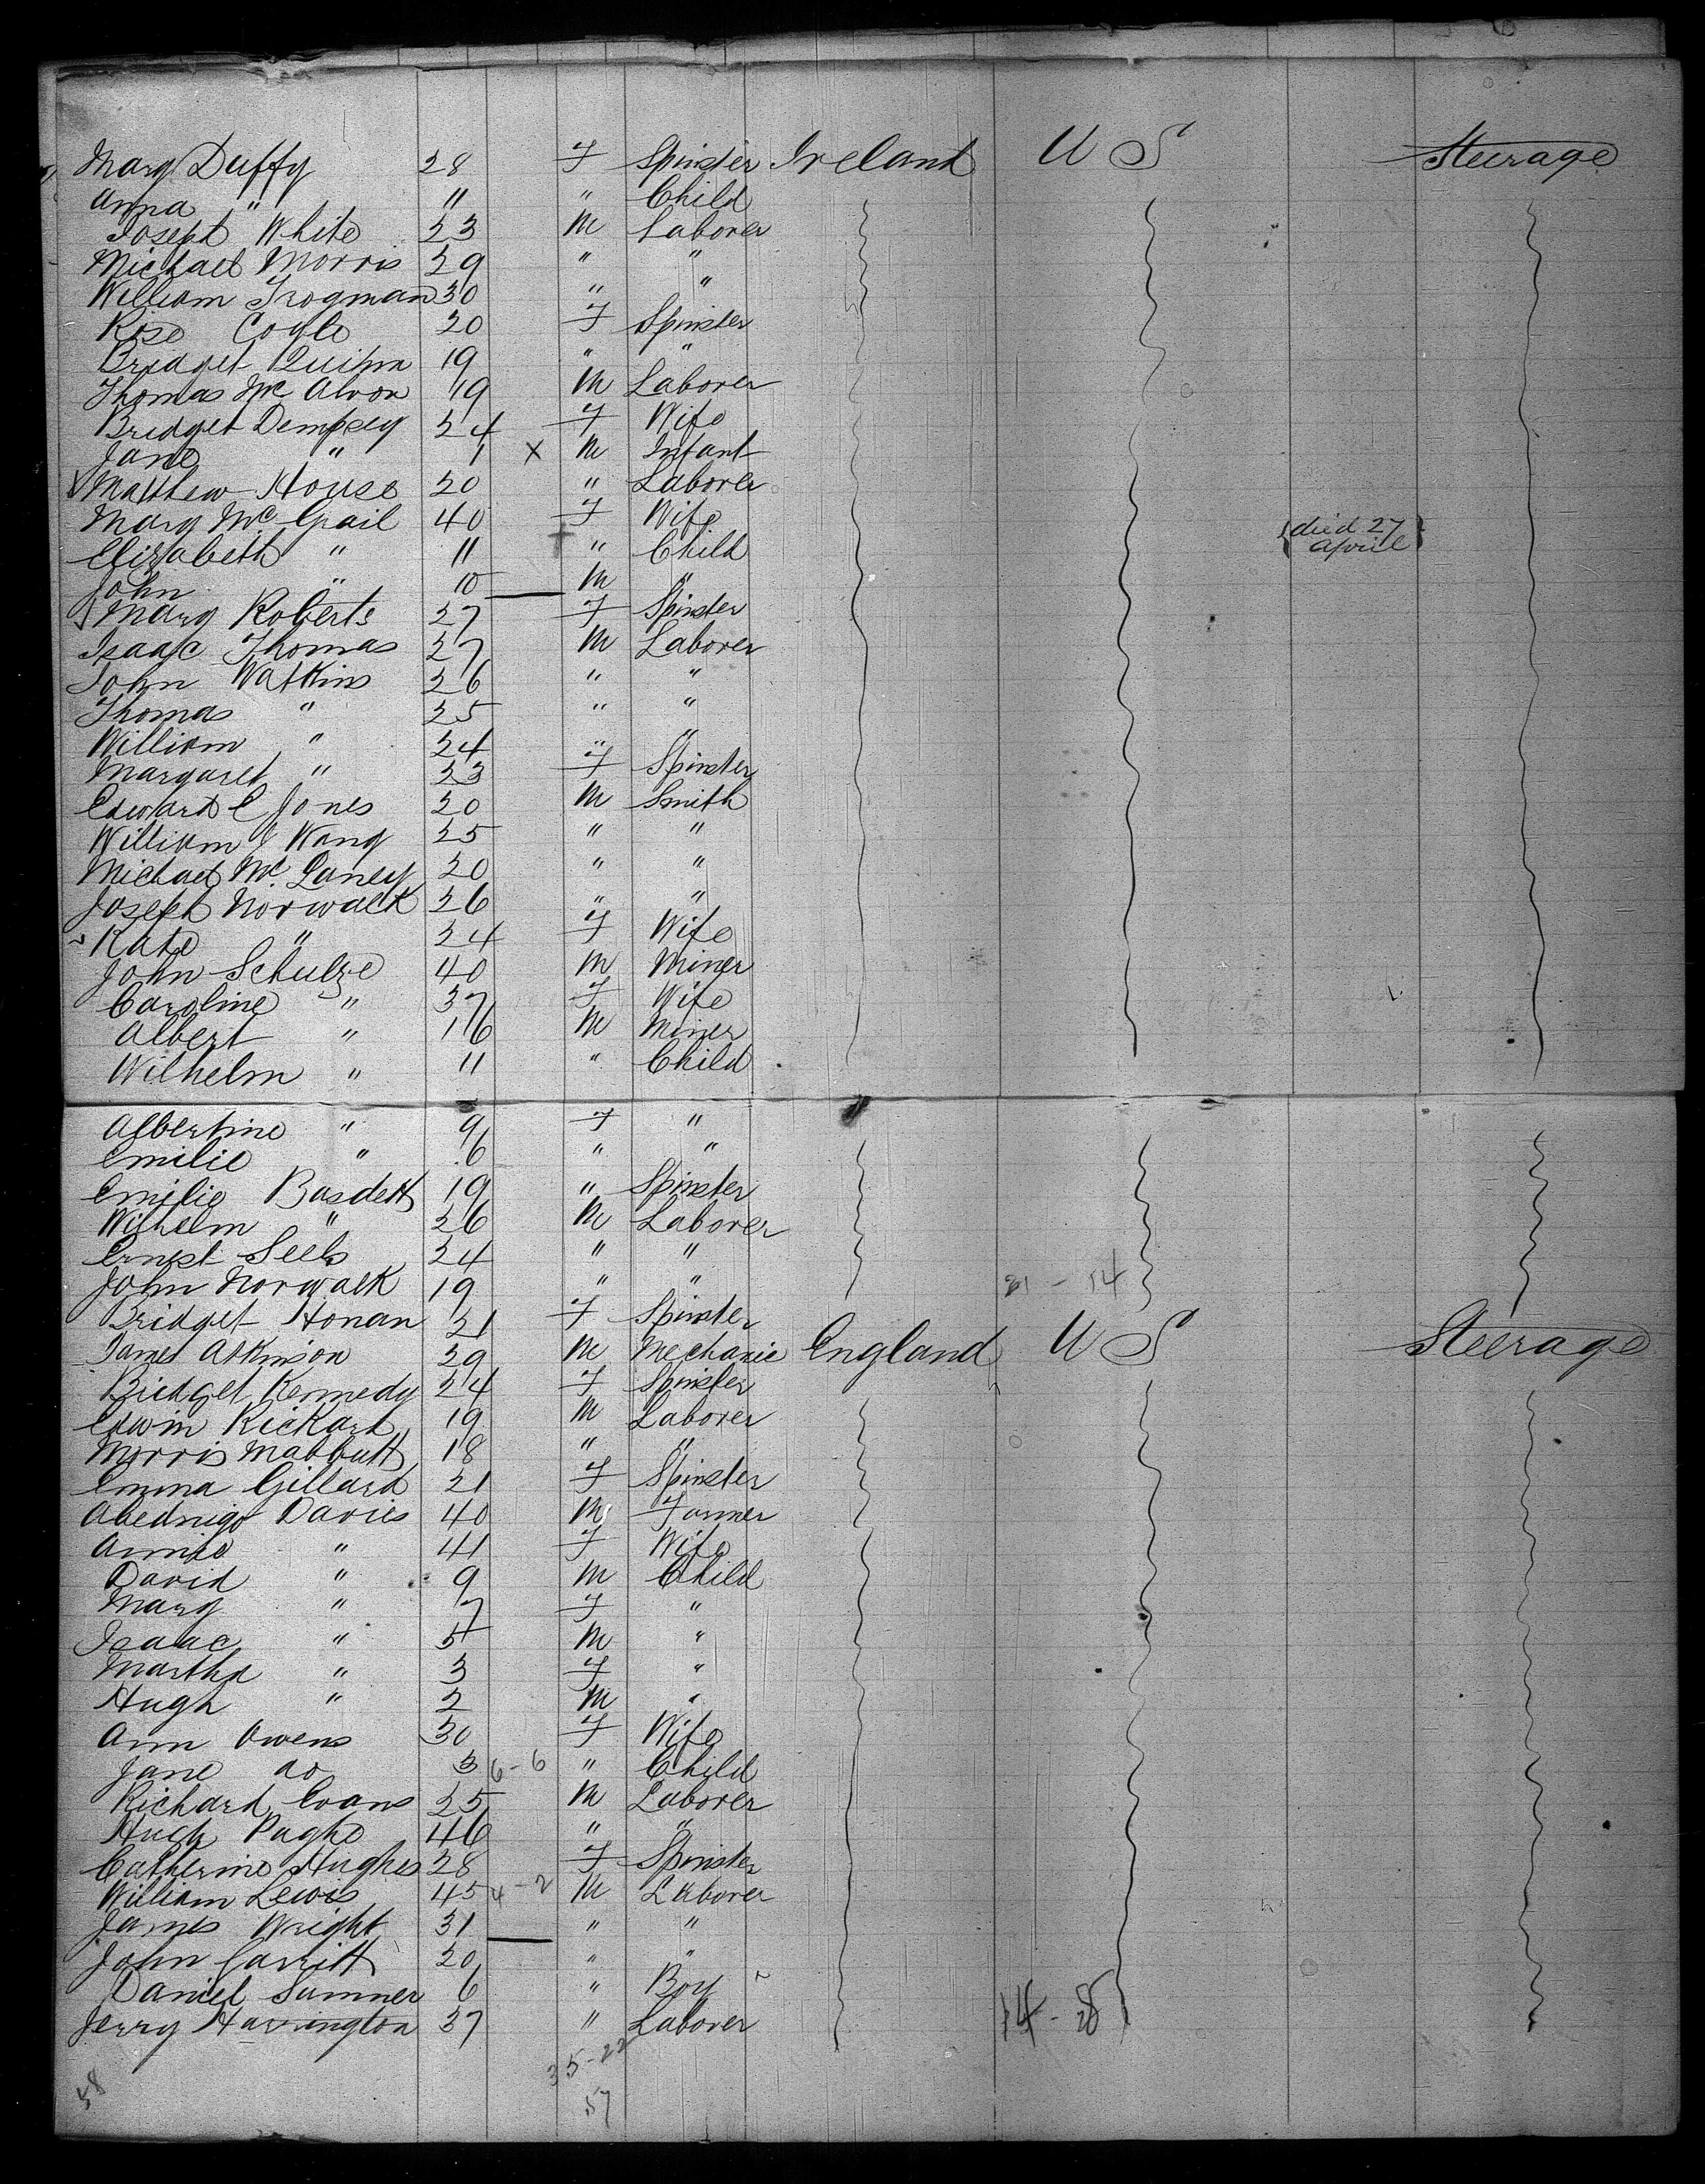 Mary Duffy 28 F Spinster Ireland U S Steerage
Anna " 11 " Child
Joseph White 23 M Laborer
Michael Morris 29 " "
William Trogman 30 " "
Rose Cogle 20 F Spinster
Bridget Quinn 19 " "
Thomas Mc Alvon 19 M Laborer
Bridget Dempsey 24 F Wife
Jane " 1 X M Infant
Matthew House 20 " Laborer
Mary Mc Grail 40 F Wife
Elizabeth " 11 + " Child {died 27 April}
John " 10 M "
Mary Roberts 27 F Spinster
Isaac Thomas 27 M Laborer
John Watkins 26 " "
Thomas " 25 " "
William " 24 " "
Margaret " 23 F Spinster
Edward C Jones 20 M Smith
William J Wang 25 " "
Michael Mc Laney 20 " "
Joseph Norwalk 26 " "
Kate " 24 F Wife
John Schulze 40 M Miner
Caroline " 37 F Wife
Albert " 16 M Miner
Wilhelm " 11 " Child
Albertine " 9 F "
Emilie " 6 " "
Emilie Basdett 19 " Spinster
Wilhelm " 26 M Laborer
Ernest Seels 24 " "
John Norwalk 19 " " 21 - 14
Bridget Honan 21 F Spinster
James Atkinson 29 M Mechanic England U S Steerage
Bridget Kennedy 24 F Spinster
Edwin Rickard 19 M Laborer
Morris Mabbutt 18 " "
Emma Gillard 21 F Spinster
Abednigo Davies 40 M Farmer
Annie " 41 F Wife
David " 9 M Child
Mary " 7 F "
Isaac " 5 M "
Martha " 3 F "
Hugh " 2 M "
Ann Owens 30 F Wife
Jane do 3 6-6 " Child
Richard Evans 25 M Laborer
Hugh Pughe 46 " "
Catherine Hughes 28 F Spinster
William Lewis 45 4-2 M Laborer
James Wright 31 " "
John Garritt 20 " "
Daniel Sumner 6 " Boy
Jerry Harrington 37 " Laborer 14 - 8
35-22
58 57